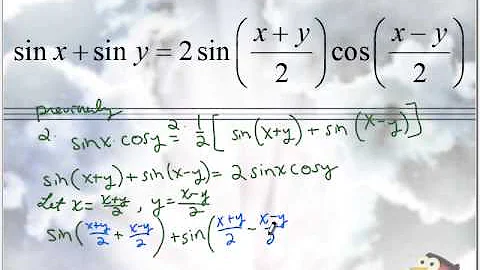 sin x + sin y = 2 sin((x + y)/2) cos((x − y)/2)
previously
2· sinx·cosy = 2· 1/2 [ sin(x+y) + sin(x-y) ]
sin(x+y) + sin(x-y) = 2 sinx cosy
Let x = (x+y)/2 , y = (x-y)/2
sin( (x+y)/2 + (x-y)/2 ) + sin( (x+y)/2 - (x-y)/2